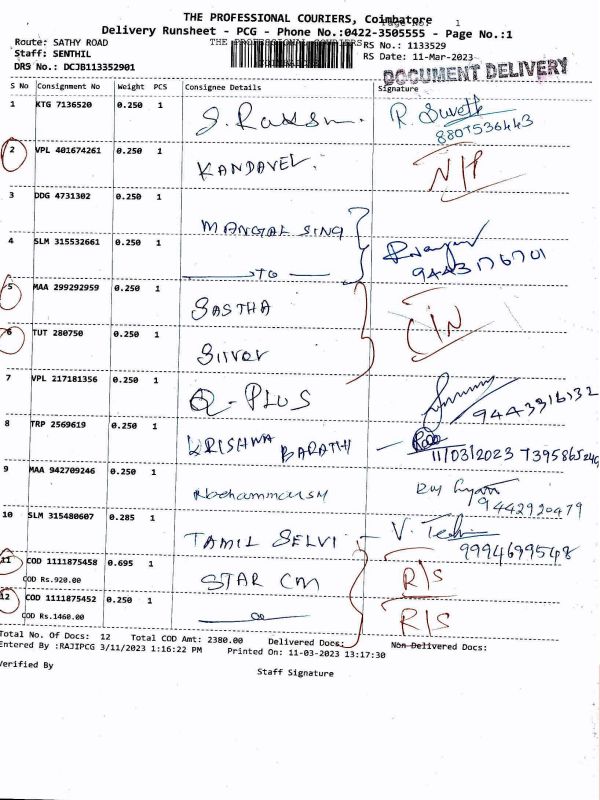 THE PROFESSIONAL COURIERS, Coimbatore
Delivery Runsheet - PCG - Phone No.:0422-3505555 - Page No.:1
Page No.: 1
Route: SATHY ROAD THE PROFESSIONAL COURIERS RS No.: 1133529
Staff: SENTHIL RS Date: 11-Mar-2023
DRS No.: DCJB113352901 DOCUMENT DELIVERY
S No Consignment No Weight PCS Consignee Details Signature
1 KTG 7136520 0.250 1
8807536443
2 VPL 401674261 0.250 1 KANDAVEL.
3 DDG 4731302 0.250 1 MANGAL SING
4 SLM 315532661 0.250 1
9443176701
5 MAA 299292959 0.250 1 SASTHA
6 TUT 280750 0.250 1 Silver
7 VPL 217181356 0.250 1 Q-PLUS 9443316132
8 TRP 2569619 0.250 1 KRISHNA BARATHI
11/03/2023
9 MAA 942709246 0.250 1
9442920479
10 SLM 315480607 0.285 1 TAMIL SELVI
9994699548
11 COD 1111875458 0.695 1 STAR CM R/S
COD Rs.920.00
12 COD 1111875452 0.250 1 R/S
COD Rs.1460.00
Total No. Of Docs: 12 Total COD Amt: 2380.00 Delivered Docs: Non Delivered Docs:
Entered By :RAJIPCG 3/11/2023 1:16:22 PM Printed On: 11-03-2023 13:17:30
Verified By
Staff Signature